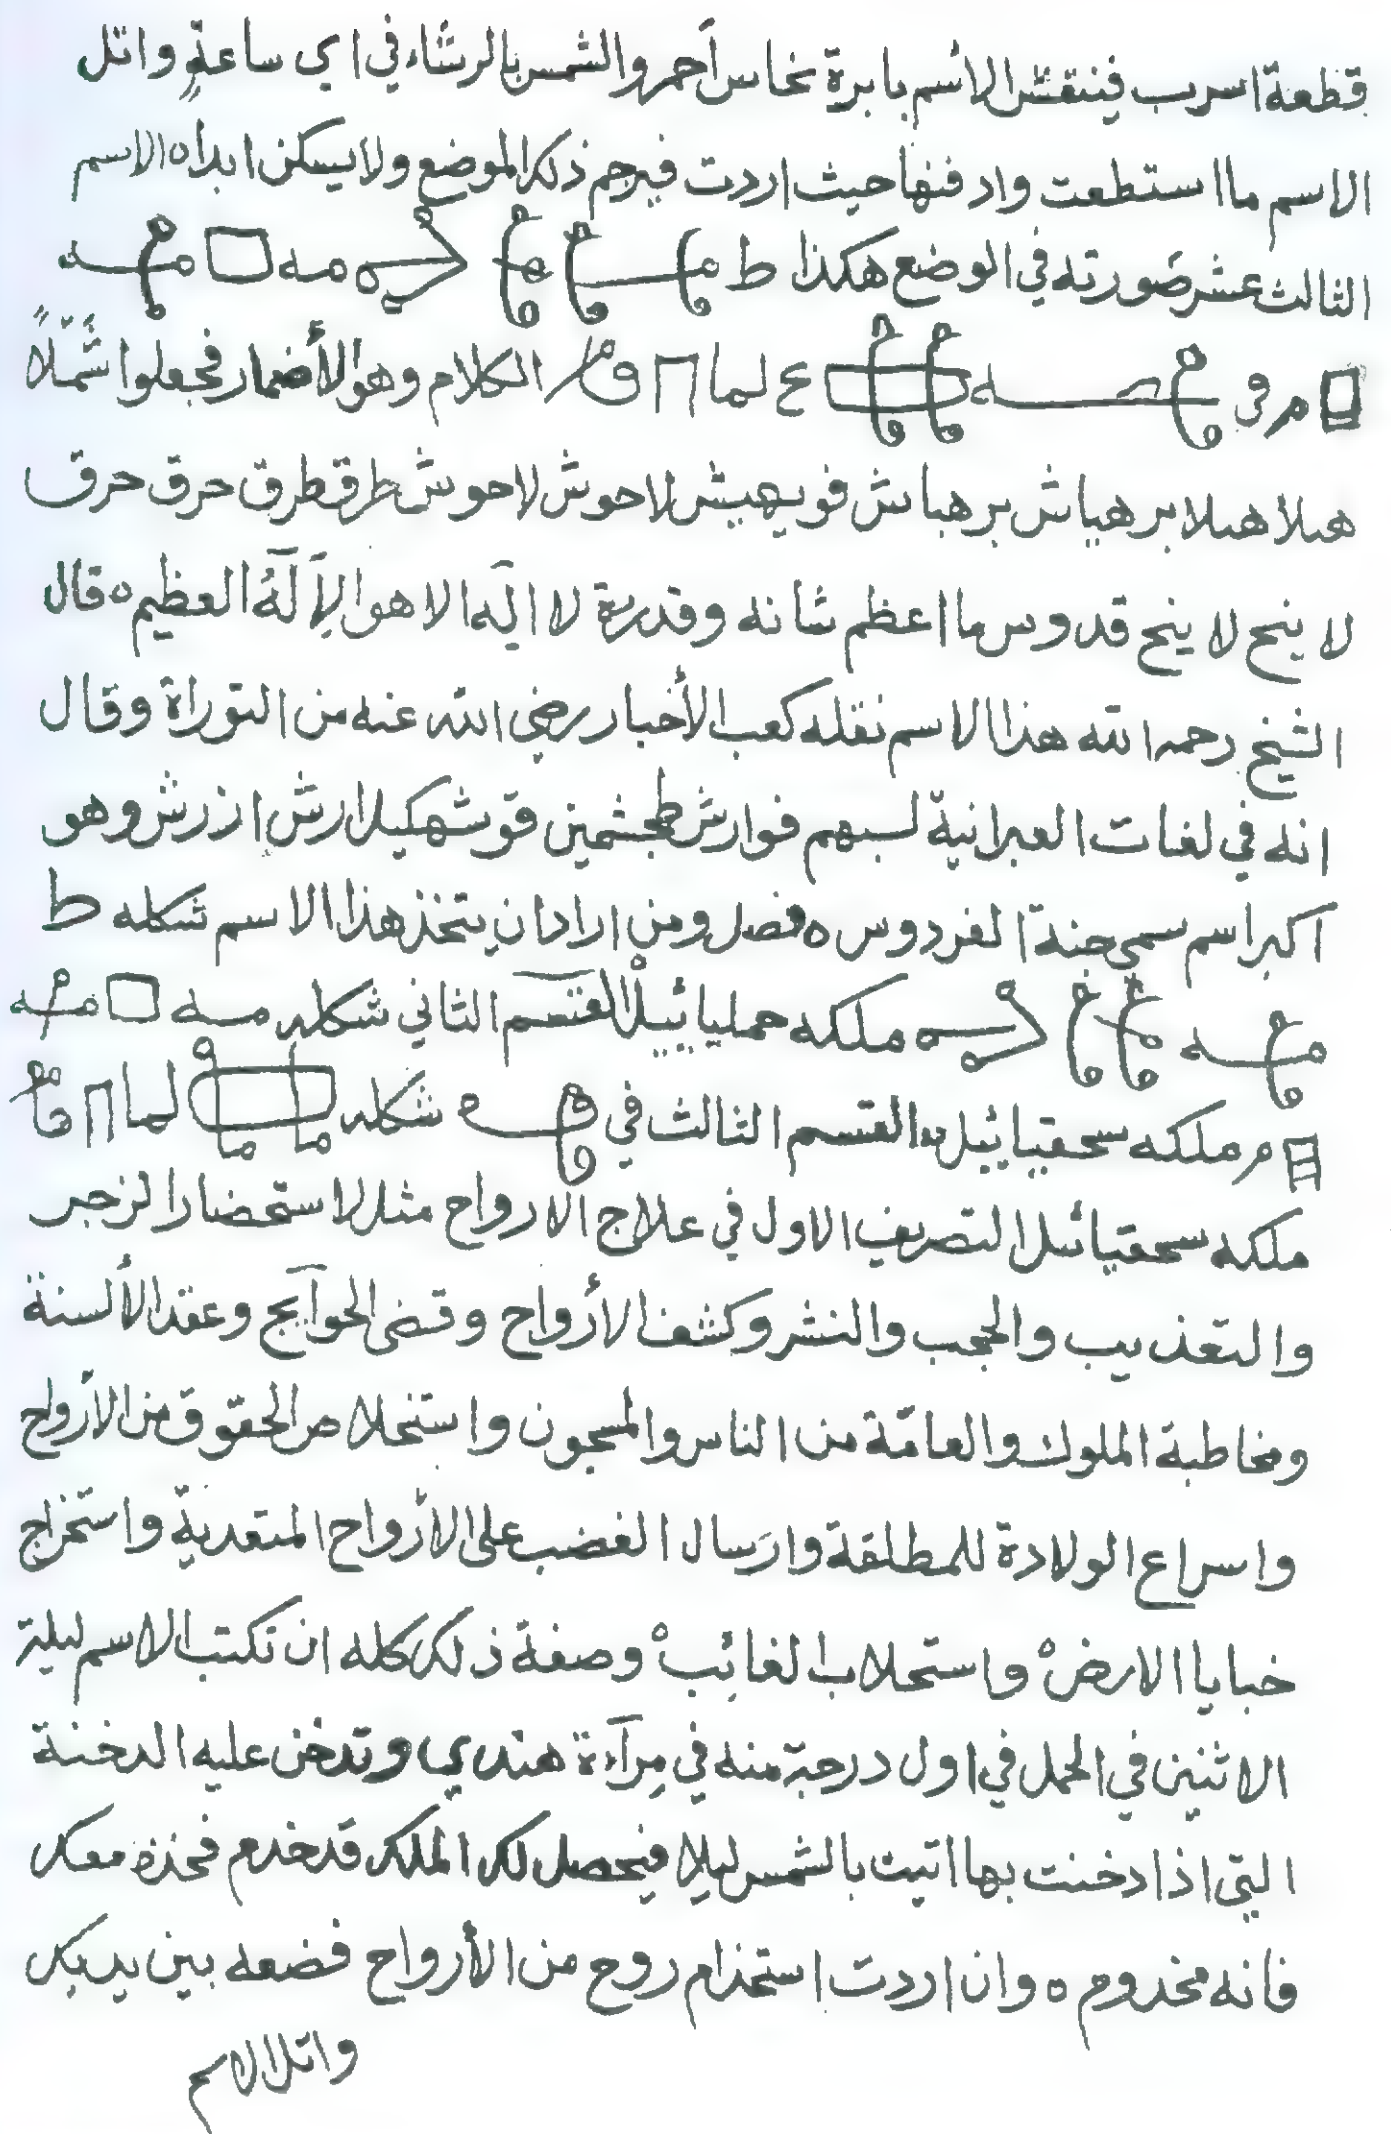 قطعة اسرب فينقش الاسم بابرة نحاس أحمر والشمس بالرشاء في اي ساعة واتل
الاسم ما استطعت وادفنها حيث اردت فيرجم ذلك الموضع ولا يسكن ابدا ه الاسم
الثالث عشر صورته في الوضع هكذا ط مه
م فى ع لما الكلام وهو الأضمار فجعلوا شملاً
هلا هلا برهياش برهباش فويهيش لاحوش لاحوش طرق طرق حرق حرق
لا ينح لا ينح قدوس ما اعظم شانه وقدرته لا اله الا هو الإله العظيم ه قال
الشيخ رحمه الله هذا الاسم نقله كعب الأخبار رضي الله عنه من التوراة وقال
انه في لغات العبرانية لسبهم فوارش طجشمين قوشهكيلا ارش ازرش وهو
اكبر اسم سمى جنة الفردوس ه فصل ومن اراد ان يتخذ هذا الاسم شكله ط
ملكه حمليائيل القسم الثاني شكله مه
م ملكه سحقيائيل القسم الثالث في شكله لما
ملكه سحقيائيل التصريف الاول في علاج الارواح مثل الاستحضار الزجر
والتعذيب والحجب والنشر وكشف الأرواح وقضى الحوآيج وعقد الألسنة
ومخاطبة الملوك والعامّة من الناس والمسجون واستخلاص الحقوق من الأرواح
واسراع الولادة للمطلقة وارسال الغضب على الأرواح المتعدية واستخراج
خبايا الارض واستجلاب الغائب وصفة ذلك كله ان تكتب الاسم ليلة
الاثنين في الحمل في اول درجة منه في مرآءة هندي وتدخن عليه الدخنة
التي اذا دخنت بها اتيت بالشمس ليلا فيحصل لك الملك قد خدم فخذه معك
فانه مخدوم ه وان اردت استخدام روح من الأرواح فضعه بين يديك
واتل الاسم